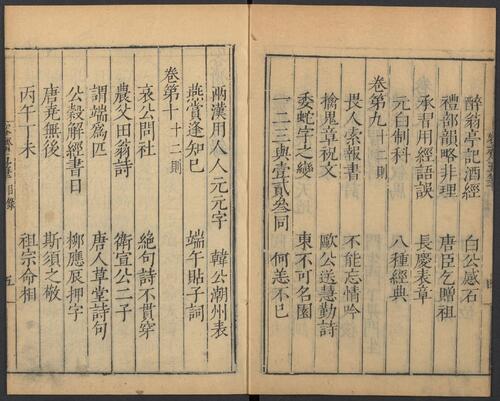 醉翁亭記酒經 白公感石
禮部韻略非理 唐臣乞贈祖
承習用經語誤 長慶表章
元白制科 八種經典
卷第九 十二則
畏人索報書 不能忘情吟
擒鬼章祝文 歐公送慧勤詩
委蛇字之變 東不可名園
一二三與壹貳叁同 何恙不已
兩漢用人人元元字 韓公潮州表
燕賞逢知己 端午貼子詞
卷第十 十二則
哀公問社 絶句詩不貫穿
農父田翁詩 衛宣公二子
謂端為匹 唐人草堂詩句
公穀解經書日 柳應辰押字
唐堯無後 斯須之敬
丙午丁未 祖宗命相
目錄
五